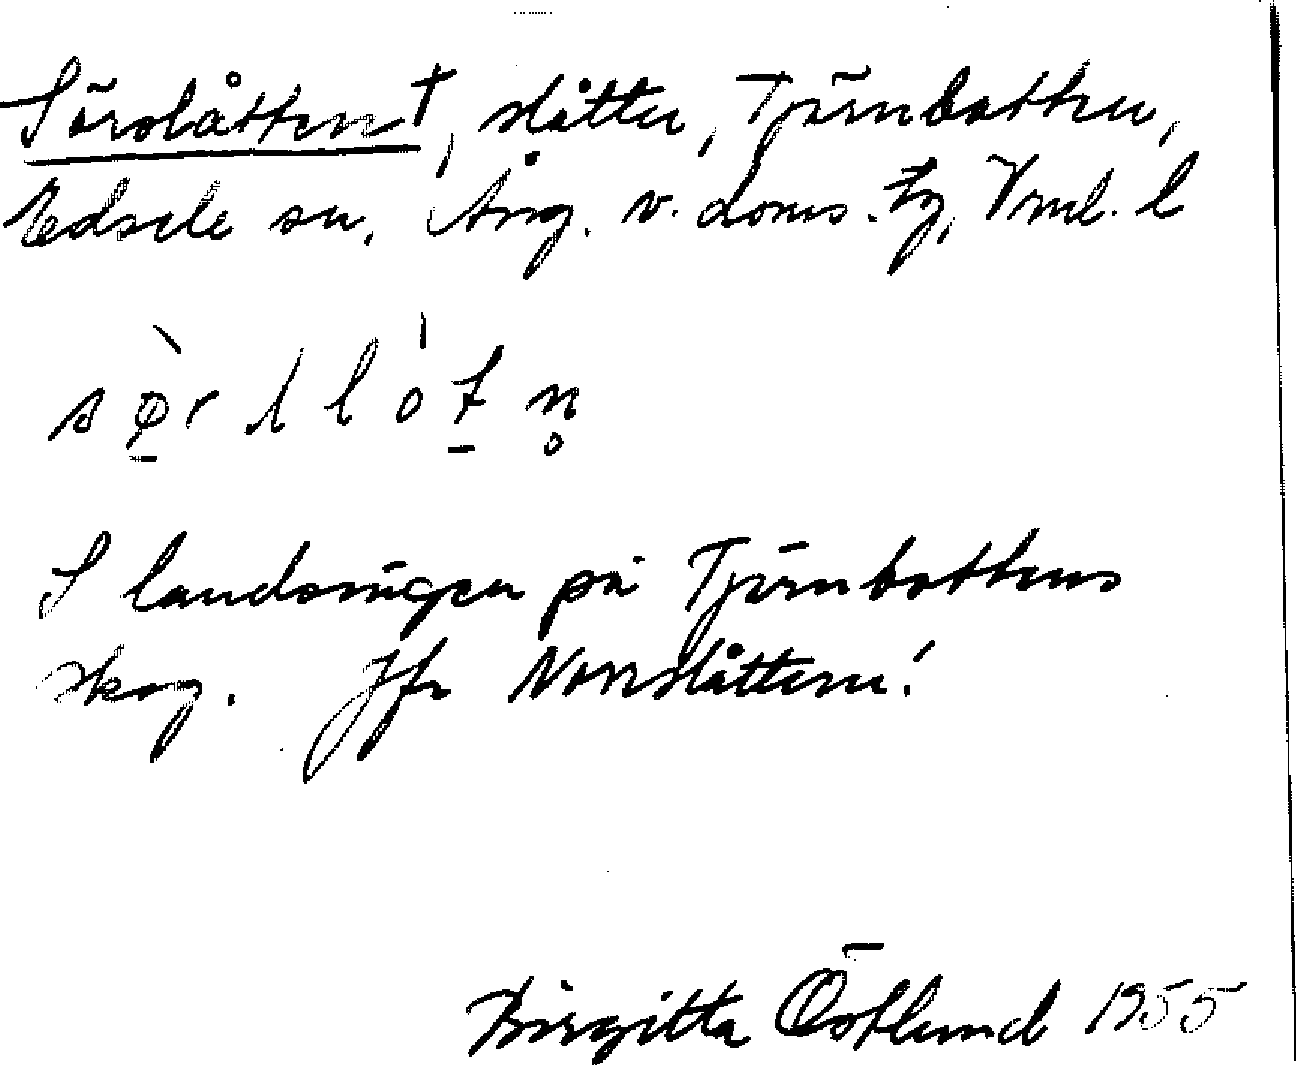 Sörslåtten †, slåtter, Tjärnbotten,
Edsele sn, Ång. v. doms. tg, Vml. l
sørsllåtn
I landsvägen på Tjärnbottens
skog. Jfr Norrslåttern!
Birgitta Östlund 1955